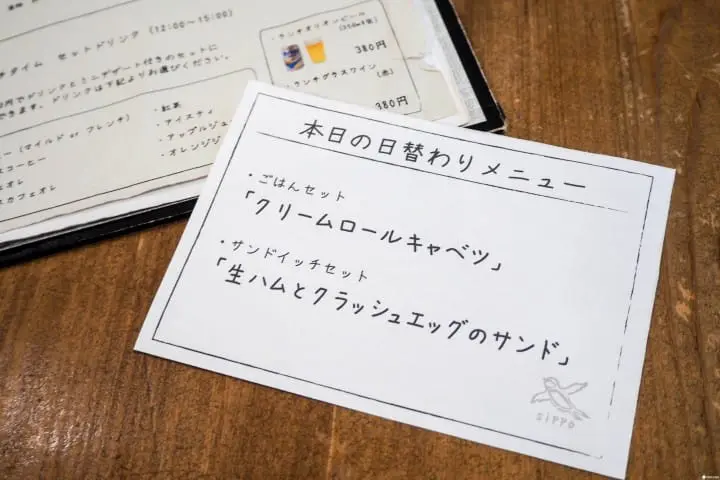 タイム セットドリンク (12:00〜15:00)
円でドリンクとミニデザート付きのセットに
できます。ドリンクは下記よりお選びください。
ー (マイルド or フレンチ)
スコーヒー
フェオレ
スカフェオレ
・紅茶
・アイスティ
・アップルジュ
・オレンジジ
・ランチオリオンビール
(350ml缶)
380円
・ランチグラスワイン
(赤)
380円
本日の日替わりメニュー
・ごはんセット
「クリームロールキャベツ」
・サンドイッチセット
「生ハムとクラッシュエッグのサンド」
SiPPO